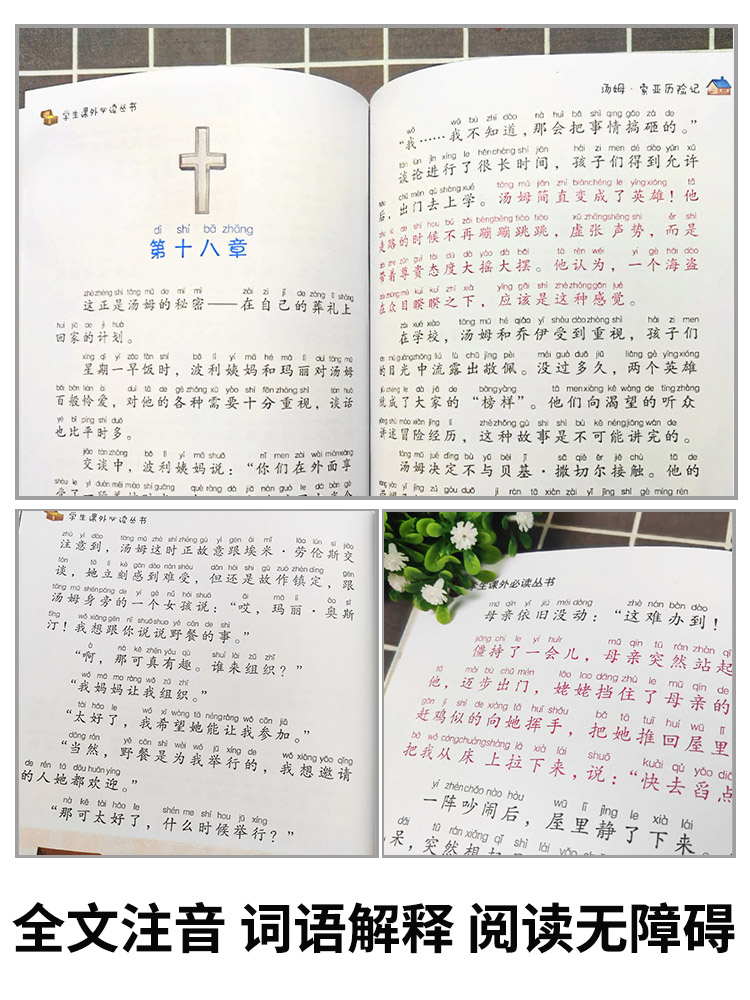 学生课外必读丛书
dì shí bā zhāng
第十八章
zhè zhèng shì tāng mǔ de mì mì zài zì jǐ de zàng lǐ shàng
这正是汤姆的秘密——在自己的葬礼上
huí jiā de jì huà
回家的计划。
xīng qī yī zǎo fàn shí bō lì yí mā hé mǎ lì duì tāng mǔ
星期一早饭时，波利姨妈和玛丽对汤姆
bǎi bān lián ài duì tā de gè zhǒng xū yào shí fēn zhòng shì tán huà
百般怜爱，对他的各种需要十分重视，谈话
yě bǐ píng shí duō
也比平时多。
jiāo tán zhōng bō lì yí mā shuō nǐ men zài wài miàn xiǎng
交谈中，波利姨妈说：“你们在外面享
汤姆·索亚历险记
wǒ wǒ bù zhī dào nà huì bǎ shì qing gǎo zá de
“我……我不知道，那会把事情搞砸的。”
tán lùn jìn xíng le hěn cháng shí jiān hái zi men dé dào yǔn xǔ
谈论进行了很长时间，孩子们得到允许
hòu chū mén qù shàng xué tāng mǔ jiǎn zhí biàn chéng le yīng xióng tā
后，出门去上学。汤姆简直变成了英雄！他
zǒu lù de shí hou bú zài bèng bèng tiào tiào xū zhāng shēng shì ér shì
走路的时候不再蹦蹦跳跳，虚张声势，而是
dài zhe zūn guì tài dù dà yáo dà bǎi tā rèn wéi yí gè hǎi dào
带着尊贵态度大摇大摆。他认为，一个海盗
zài zhòng mù kuí kuí zhī xià yīng gāi shì zhè zhǒng gǎn jué
在众目睽睽之下，应该是这种感觉。
zài xué xiào tāng mǔ hé qiáo yī shòu dào zhòng shì hái zi men
在学校，汤姆和乔伊受到重视，孩子们
de mù guāng zhōng liú lù chū jìng pèi méi guò duō jiǔ liǎng gè yīng xióng
的目光中流露出敬佩。没过多久，两个英雄
jiù chéng le dà jiā de bǎng yàng tā men xiàng kě wàng de tīng zhòng
就成了大家的“榜样”。他们向渴望的听众
jiǎng shù mào xiǎn jīng lì zhè zhǒng gù shi shì bù kě néng jiǎng wán de
讲述冒险经历，这种故事是不可能讲完的。
tāng mǔ jué dìng bù yǔ bèi jī sā qiè ěr jiē chù tā de
汤姆决定不与贝基·撒切尔接触。他的
学生课外必读丛书
zhù yì dào tāng mǔ zhè shí zhèng gù yì gēn āi mǐ láo lún sī jiāo
注意到，汤姆这时正故意跟埃米·劳伦斯交
tán tā lì kè gǎn dào nán shòu dàn hái shi gù zuò zhèn dìng gēn
谈，她立刻感到难受，但还是故作镇定，跟
tāng mǔ shēn páng de yí gè nǚ hái shuō āi mǎ lì ào sī
汤姆身旁的一个女孩说：“哎，玛丽·奥斯
tīng wǒ xiǎng gēn nǐ shuō shuo yě cān de shì
汀！我想跟你说说野餐的事。”
à nà kě zhēn yǒu qù shuí lái zǔ zhī
“啊，那可真有趣。谁来组织？”
wǒ mā ma ràng wǒ zǔ zhī
“我妈妈让我组织。”
tài hǎo le wǒ xī wàng tā néng ràng wǒ cān jiā
“太好了，我希望她能让我参加。”
dāng rán yě cān shì wèi wǒ jǔ xíng de wǒ xiǎng yāo qǐng
“当然，野餐是为我举行的，我想邀请
de rén tā dōu huān yíng
的人她都欢迎。”
nà kě tài hǎo le shén me shí hou jǔ xíng
“那可太好了，什么时候举行？”
学生课外必读丛书
mǔ qīn yī jiù méi dòng zhè nán bàn dào
母亲依旧没动：“这难办到！
jiāng chí le yí huìr mǔ qīn tū rán zhàn qǐ
僵持了一会儿，母亲突然站起
tā mài bù chū mén lǎo lao dǎng zhù le mǔ qīn de
他，迈步出门，姥姥挡住了母亲的
gǎn jī shì de xiàng tā huī shǒu bǎ tā tuī huí wū lǐ
赶鸡似的向她挥手，把她推回屋里
bǎ wǒ cóng chuáng shàng lā xià lái shuō kuài qù yǎo diǎn
把我从床上拉下来，说：“快去舀点
yí zhèn chǎo nào hòu wū lǐ jìng le xià lái
一阵吵闹后，屋里静了下来。
全文注音 词语解释 阅读无障碍